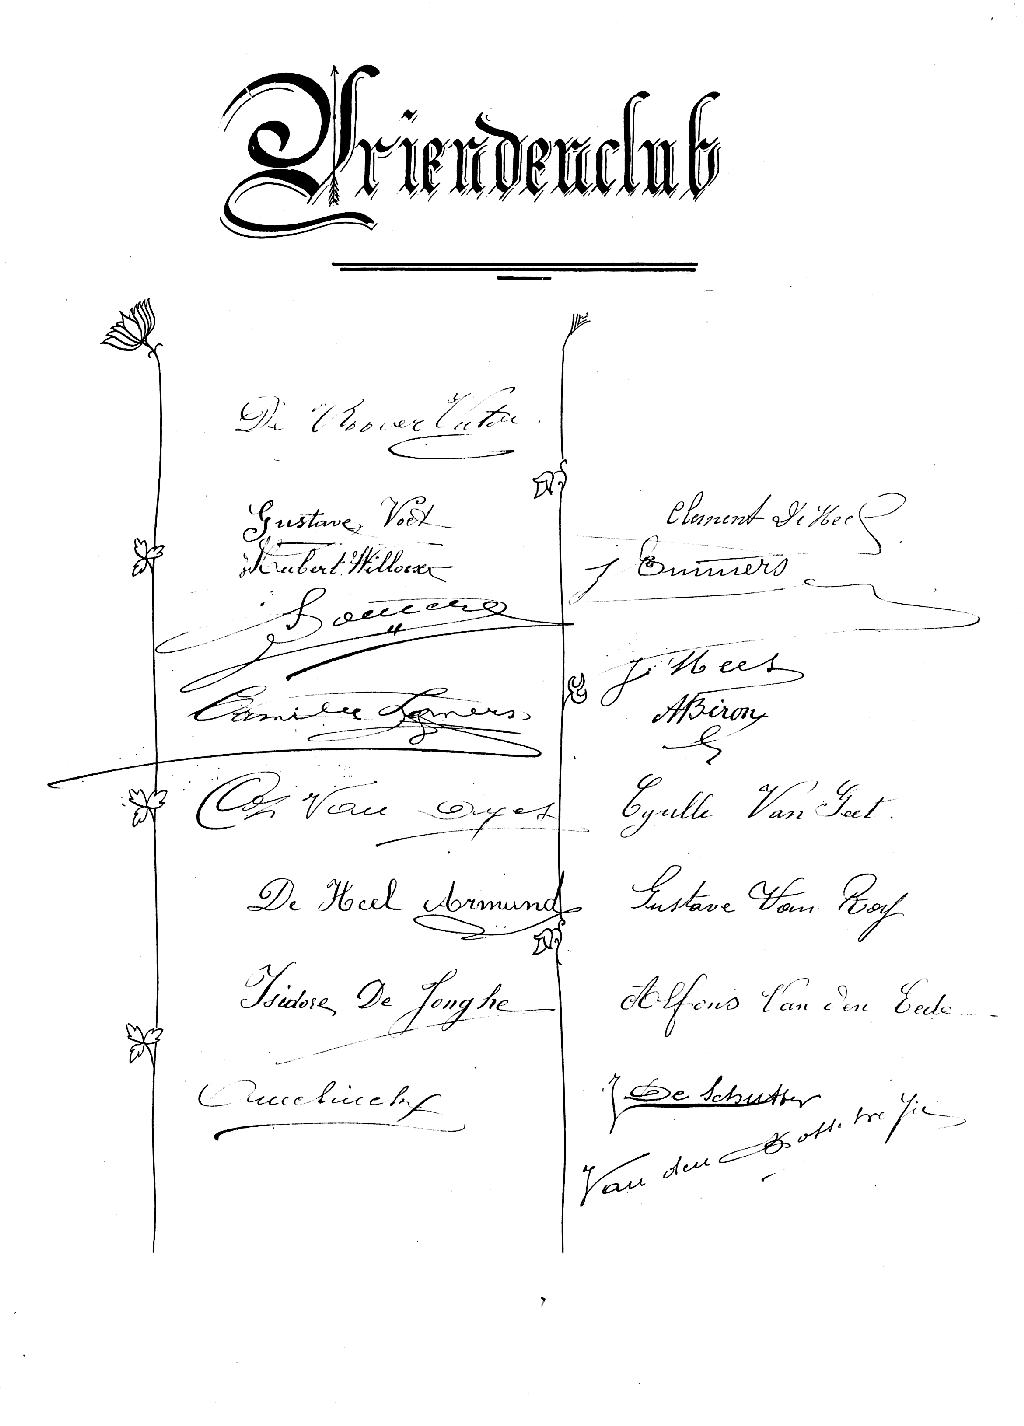 Vriendenclub
De Roover Victor
Gustave Voet
Hubert Willocx
Camille Somers
Van
De Heel Armand
Isidore De Jonghe
Clement D'Heel
J Emmers
J. Hees
A Biron
Cyrille Van Geet
Gustave Van Roy
Alfons Van den Eede
J De Schutter
Van den